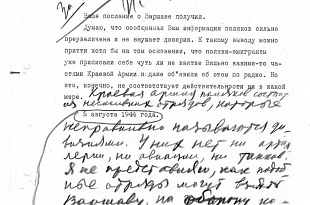 Ваше послание о Варшаве получил.
Думаю, что сообщенная Вам информация поляков сильно
преувеличена и не внушает доверия. К такому выводу можно
притти хотя бы на том основании, что поляки-эмигранты
уже приписали себе чуть ли не взятие Вильно какими-то ча-
стями Краевой Армии и даже об'явили об этом по радио. Но
это, конечно, не соответствует действительности ни в какой
мере. Краевая армия поляков состоит
из нескольких отрядов, которые
5 августа 1944 года.
неправильно называются ди-
визиями. У них нет ни артил-
лерии, ни авиации, ни танков.
Я не представляю, как подоб-
ные отряды могут взять
Варшаву, на оборону ко-